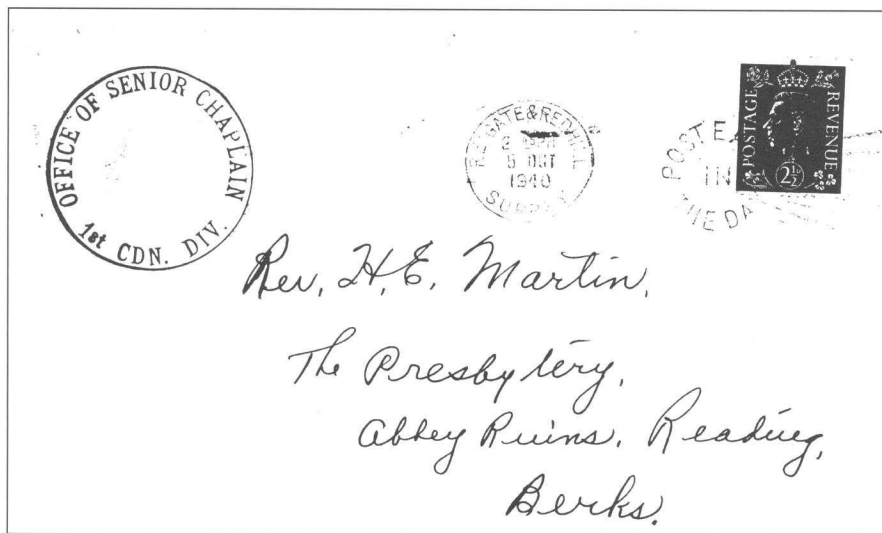 OFFICE OF SENIOR CHAPLAIN
1st CDN. DIV.
REIGATE & REDHILL
5 OCT
1940
SURREY
POST EARLY
IN
THE DAY
POSTAGE REVENUE
2½
Rev. H. E. Martin,
The Presbytery,
Abbey Ruins. Reading,
Berks.